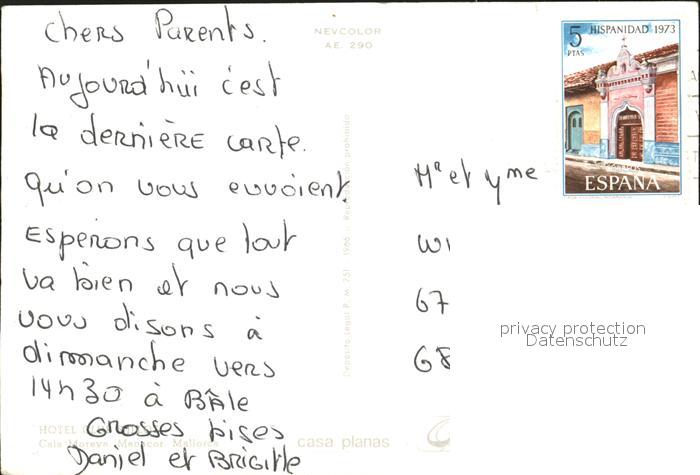 Chers Parents.
Aujourd'hui c'est
la dernière carte.
qu'on vous envoient.
Esperons que tout
va bien et nous
vous disons à
dimanche vers
14h30 à Bâle
Grosses bises
Daniel et Brigitte
NEVCOLOR
AE. 290
Deposito Legal P. M. 751 - 1966
HOTEL
Cala Moreya, Manacor, Mallorca
casa planas
5 PTAS
HISPANIDAD 1973
CORREOS
ESPAÑA
Mr et Mme
WI
67
68
privacy protection
Datenschutz